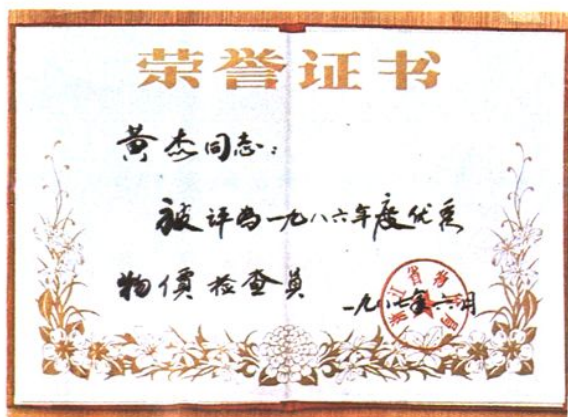 荣誉证书
黄杰同志：
被评为一九八六年度优秀
物價检查员
一九八七年六月